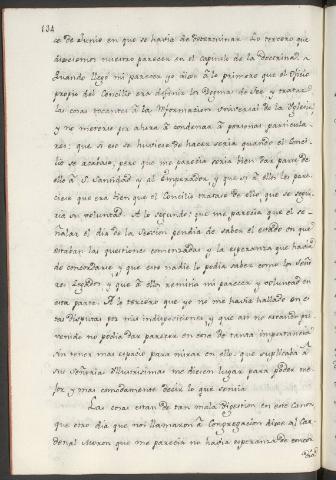 134
ce de Junio en que se havia de determinar. Lo tercero que
dixesemos nuestro parecer en el capitulo de la doctrina.
Quando llegó mi parecer yo dixe à lo primero que el Oficio
propio del Concilio era definir los Dogmas de Fee y tratar
las cosas tocantes à la Reformacion universal de la Iglesia,
y no meterse por ahora à condenar à personas particula-
res: que si eso se huviese de hacer seria quando el Conci-
lio se acabase, pero que me parecia seria bien dar parte de
ello à S. Santidad y al Emperador, y que si à ellos les pare-
ciese que era bien que el Concilio tratase de ello, que se segui-
ria su voluntad. A lo segundo: que me parecia que el se-
ñalar el dia de la Sesion pendia de saber el estado en que
estaban las questiones comenzadas y la esperanza que havia
de concordarse, y que esto nadie lo podia saber como los Seño-
res Legados y que à ellos remitia mi parecer y voluntad en
esta parte. A lo tercero que yo no me havia hallado en es-
tas disputas por mis indisposiciones, y que asi no estando pre-
venido no podia dar parecer en cosa de tanta importancia
sin tener mas espacio para mirar en ello: que suplicaba à
sus Señorias Illustrisimas me diesen lugar para poder me-
jor y mas comodamente decir lo que sentia.
Las cosas estan de tan mala digestion en este Concilio
que otro dia que nos llamaron à Congregacion dixe al Car-
denal Moron que me parecia no havia esperanza de concor-
dia